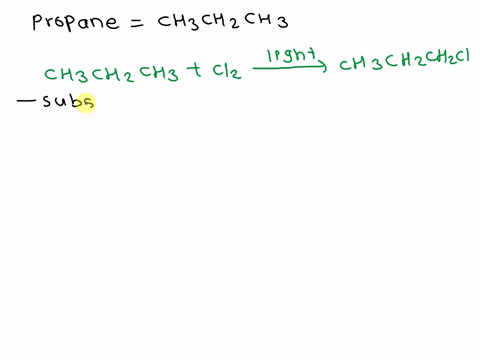 Propane = CH3CH2CH3
CH3CH2CH3 + Cl2 light CH3CH2CH2Cl
— subs